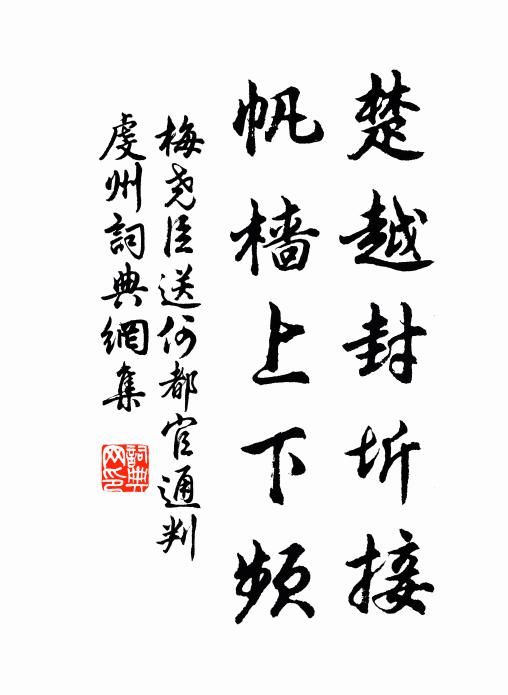 楚越封圻接
帆樯上下頻
梅尧臣送何都官通判
虔州詞典網集
詞典网印